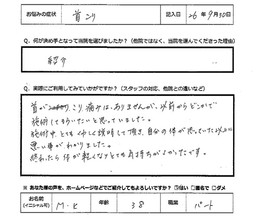 お悩みの症状 首こり 記入日 26年9月30日
Q. 何が決め手となって当院を選びましたか?(他院ではなく、当院を選んでくださった理由)
紹介
Q. 実際にご利用してみていかがですか?(スタッフの対応、他院との違いなど)
首がこり、痛みはありませんが、以前からどこかで
施術してもらいたいと思っていました。
施術中とても詳しく説明して頂き、自分の体が思っていた以上に
悪い事がわかりました。
終わったら体が軽くなってとても気持ちがよかったです。
※あなた様の声を、ホームページなどでご紹介してもよろしいですか? ダメ
お名前 (イニシャル可) M・K 年齢 38 職業 パート